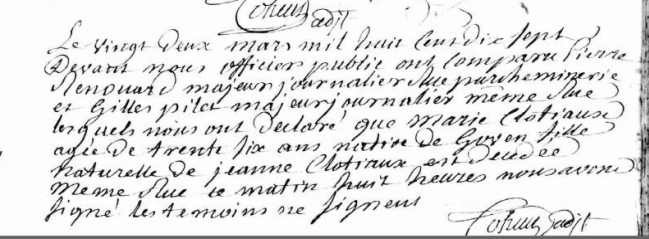 adjt
Le vingt deux mars mil huit Cent dix sept
Devant nous officier public ont Comparu Pierre
Renouard majeur journalier Rue parcheminerie
et Gilles pilet majeur journalier même Rue
lesquels nous ont Declaré que marie Clotiaux
agée De trente six ans native de Goven fille
naturelle De jeanne Clotiaux est Decedée
même Rue ce matin huit heures nous avons
signé les temoins ne signent
adjt